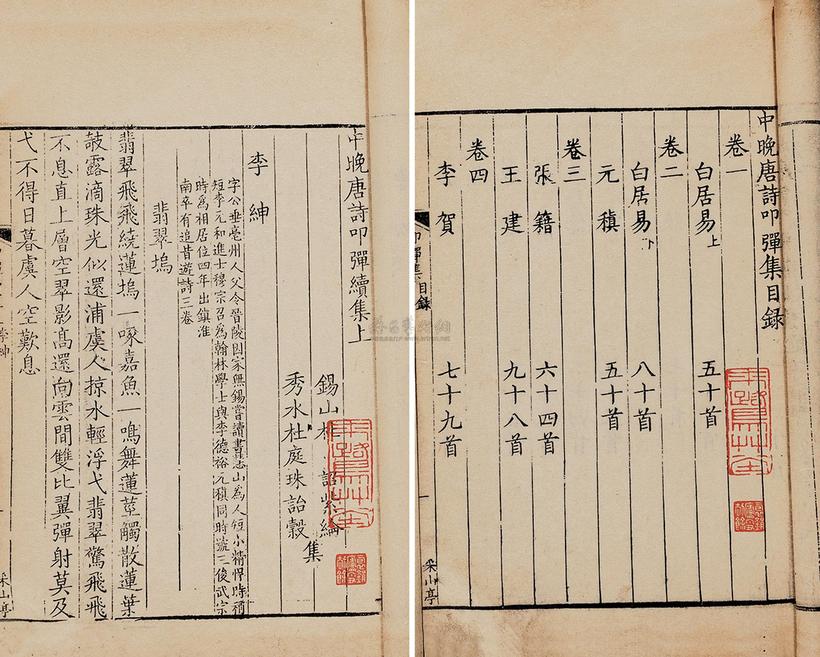 中晚唐詩叩彈集目録
卷一
白居易上 五十首
卷二
白居易下 八十首
元稹 五十首
卷三
張籍 六十四首
王建 九十八首
卷四
李賀 七十九首
叩彈集目録
采山亭
中晚唐詩叩彈續集上
錫山杜 詔紫綸
秀水杜庭珠詒穀 集
李紳
字公垂亳州人父令晉陵因家無錫嘗讀書惠山為人短小精悍時稱
短李元和進士穆宗召為翰林學士與李德裕元稹同時號三俊武宗
時為相居位四年出鎮淮
南卒有追昔遊詩三卷
翡翠塢
翡翠飛飛繞蓮塢一啄嘉魚一鳴舞蓮莖觸散蓮葉
攲露滴珠光似還浦虞人掠水輕浮弋翡翠驚飛飛
不息直上層空翠影高還向雲間雙比翼彈射莫及
弋不得日暮虞人空歎息
李紳
采山亭